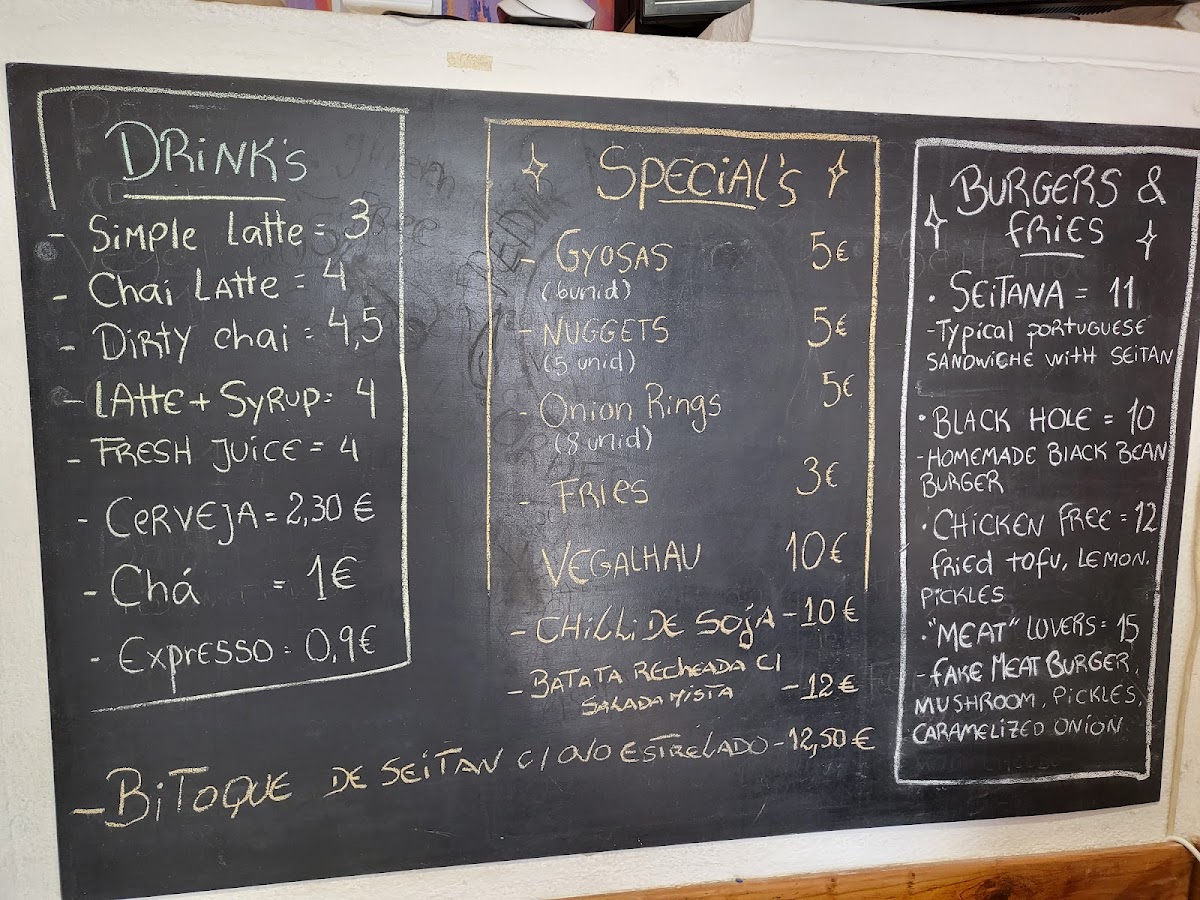 DRINK'S
- Simple Latte = 3
- Chai Latte = 4
- Dirty chai = 4,5
- LAttE + SYRUP = 4
- FRESH JUICE = 4
- CERVEJA = 2,30 €
- Chá = 1€
- Expresso = 0,9€
SPECIAL'S
- GYOSAS 5€
(6unid)
- NUGGETS 5€
(5 unid)
- Onion Rings 5€
(8 unid)
- FRIES 3€
VEGALHAU 10€
- CHILLI DE SOJA - 10€
- BATATA RECHEADA C/
SALADA MISTA - 12€
- BITOQUE DE SEITAN C/ OVO ESTRELADO - 12,50€
BURGERS &
FRIES
• SEITANA = 11
- TYPICAL PORTUGUESE
SANDWICHE WITH SEITAN
• BLACK HOLE = 10
- HOMEMADE BLACK BEAN
BURGER
• CHICKEN FREE = 12
FRIED TOFU, LEMON,
PICKLES
• "MEAT" LOVERS = 15
- FAKE MEAT BURGER,
MUSHROOM, PICKLES,
CARAMELIZED ONION